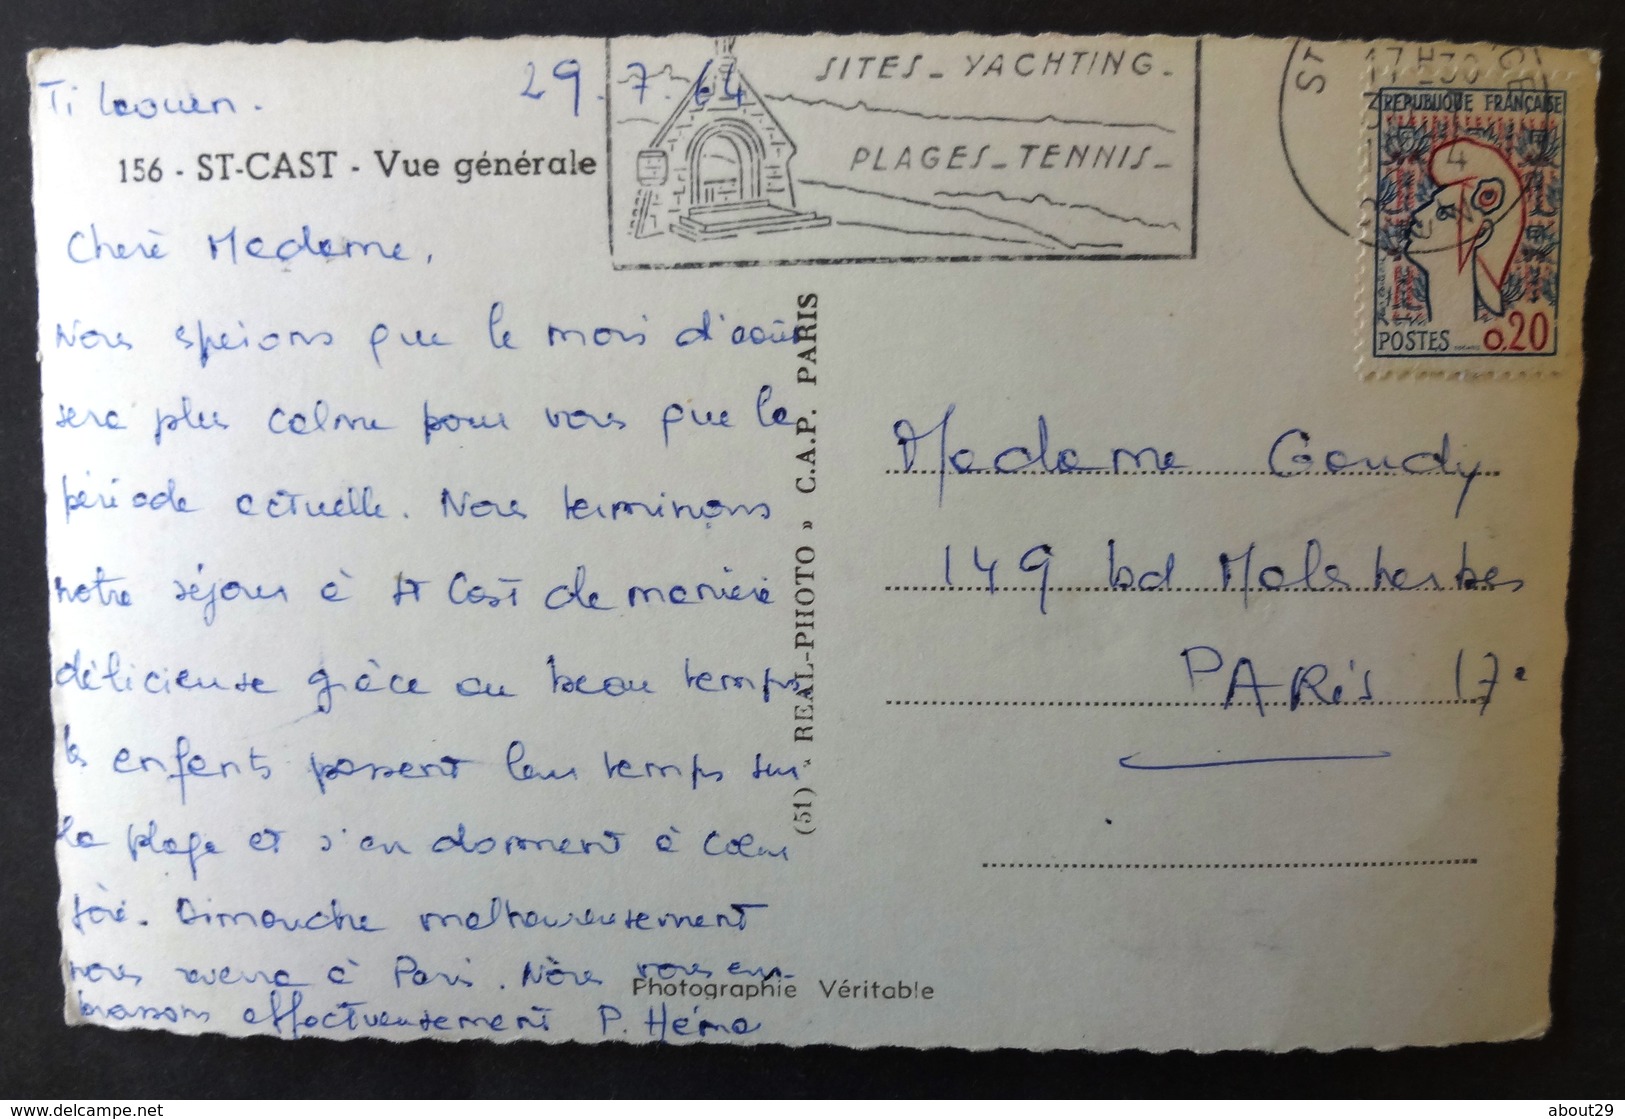 Ti Laouen.
29.7.64
156 - ST-CAST - Vue générale
SITES - YACHTING -
PLAGES - TENNIS -
ST
17 H30
RÉPUBLIQUE FRANÇAISE
POSTES 0,20
Cheré Madame,
Nous espérons que le mois d'août
sera plus calme pour vous que la
période actuelle. Nous terminons
notre séjour à St Cast de manière
délicieuse grâce au beau temps
les enfants passent leur temps sur
la plage et s'en donnent à cœur
joie. Dimanche malheureusement
nous à Paris. Nous vous em-
brassons affectueusement P.
Photographie Véritable
(51) « REAL-PHOTO » C.A.P. PARIS
Madame Goudy
149 bd Malesherbes
PARIS 17e
www.delcampe.net
about29